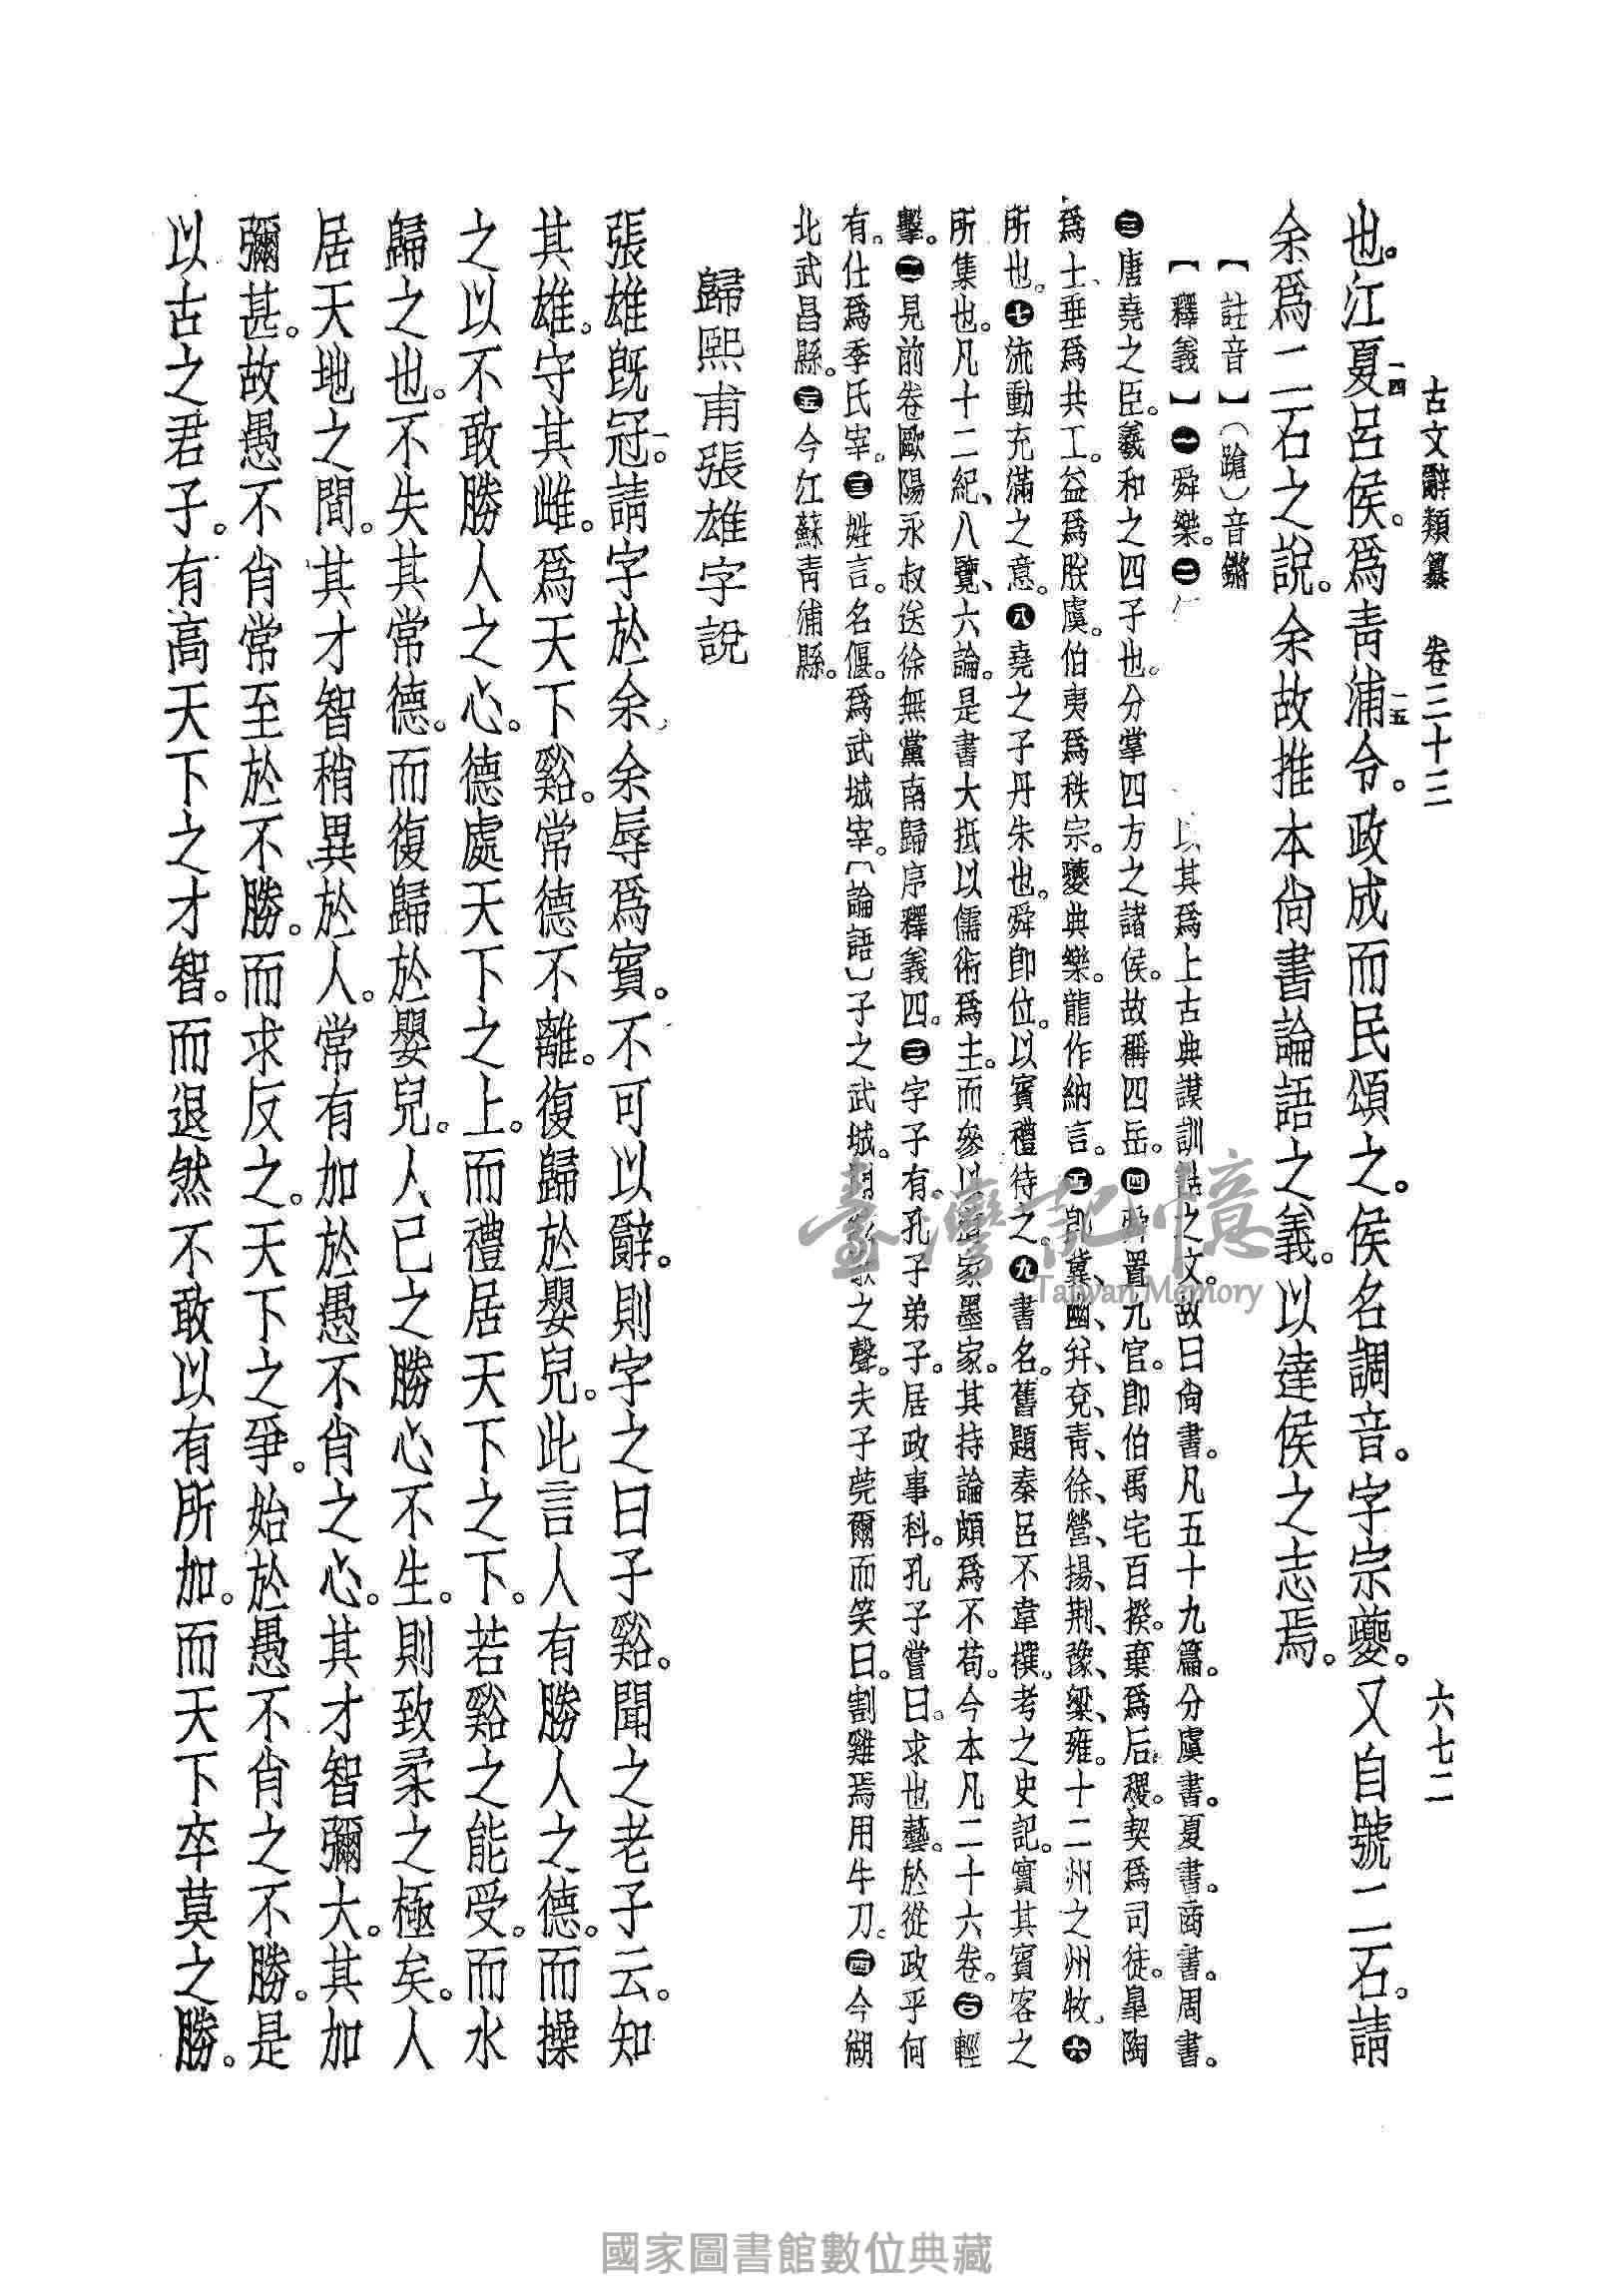 古文辭類纂　卷三十三　六七二
也。江夏一四呂侯。爲青浦一五令。政成而民頌之。侯名調音。字宗夔。又自號二石。請
余爲二石之說。余故推本尙書論語之義。以達侯之志焉。
【註音】（蹌）音鏘
【釋義】㊀舜樂。㊁以其爲上古典謨訓誥之文。故曰尙書。凡五十九篇。分虞書。夏書。商書。周書。
㊂唐堯之臣。羲和之四子也。分掌四方之諸侯。故稱四岳。㊃舜置九官。卽伯禹宅百揆。棄爲后稷。契爲司徒。皐陶
爲士、垂爲共工。益爲朕虞。伯夷爲秩宗。夔典樂。龍作納言。㊄卽冀、幽、幷、兗、青、徐、營、揚、荆、豫、梁、雍。十二州之州牧。㊅
所也。㊆流動充滿之意。㊇堯之子丹朱也。舜卽位。以賓禮待之。㊈書名。舊題秦呂不韋撰。考之史記。實其賓客之
所集也。凡十二紀、八覽、六論。是書大抵以儒術爲主。而參以道家墨家。其持論頗爲不苟。今本凡二十六卷。㊉輕
擊。㊀㊀見前卷歐陽永叔送徐無黨南歸序釋義四。㊀㊁字子有。孔子弟子。居政事科。孔子嘗曰。求也藝。於從政乎何
有。仕爲季氏宰。㊀㊂姓言。名偃。爲武城宰。〔論語〕子之武城。聞弦歌之聲。夫子莞爾而笑曰。割雞焉用牛刀。㊀㊃今湖
北武昌縣。㊀㊄今江蘇青浦縣。
歸熙甫張雄字說
張雄旣冠一。請字於余、余辱爲賓。不可以辭。則字之曰子谿。聞之老子云。知
其雄。守其雌。爲天下谿。常德不離。復歸於嬰兒。此言人有勝人之德。而操
之以不敢勝人之心。德處天下之上。而禮居天下之下。若谿之能受。而水
歸之也。不失其常德。而復歸於嬰兒。人己之勝心不生。則致柔之極矣。人
居天地之間。其才智稍異於人。常有加於愚不肖之心。其才智彌大。其加
彌甚。故愚不肖常至於不勝。而求反之。天下之爭。始於愚不肖之不勝。是
以古之君子。有高天下之才智。而退然不敢以有所加。而天下卒莫之勝。
臺灣記憶
Taiwan Memory
國家圖書館數位典藏